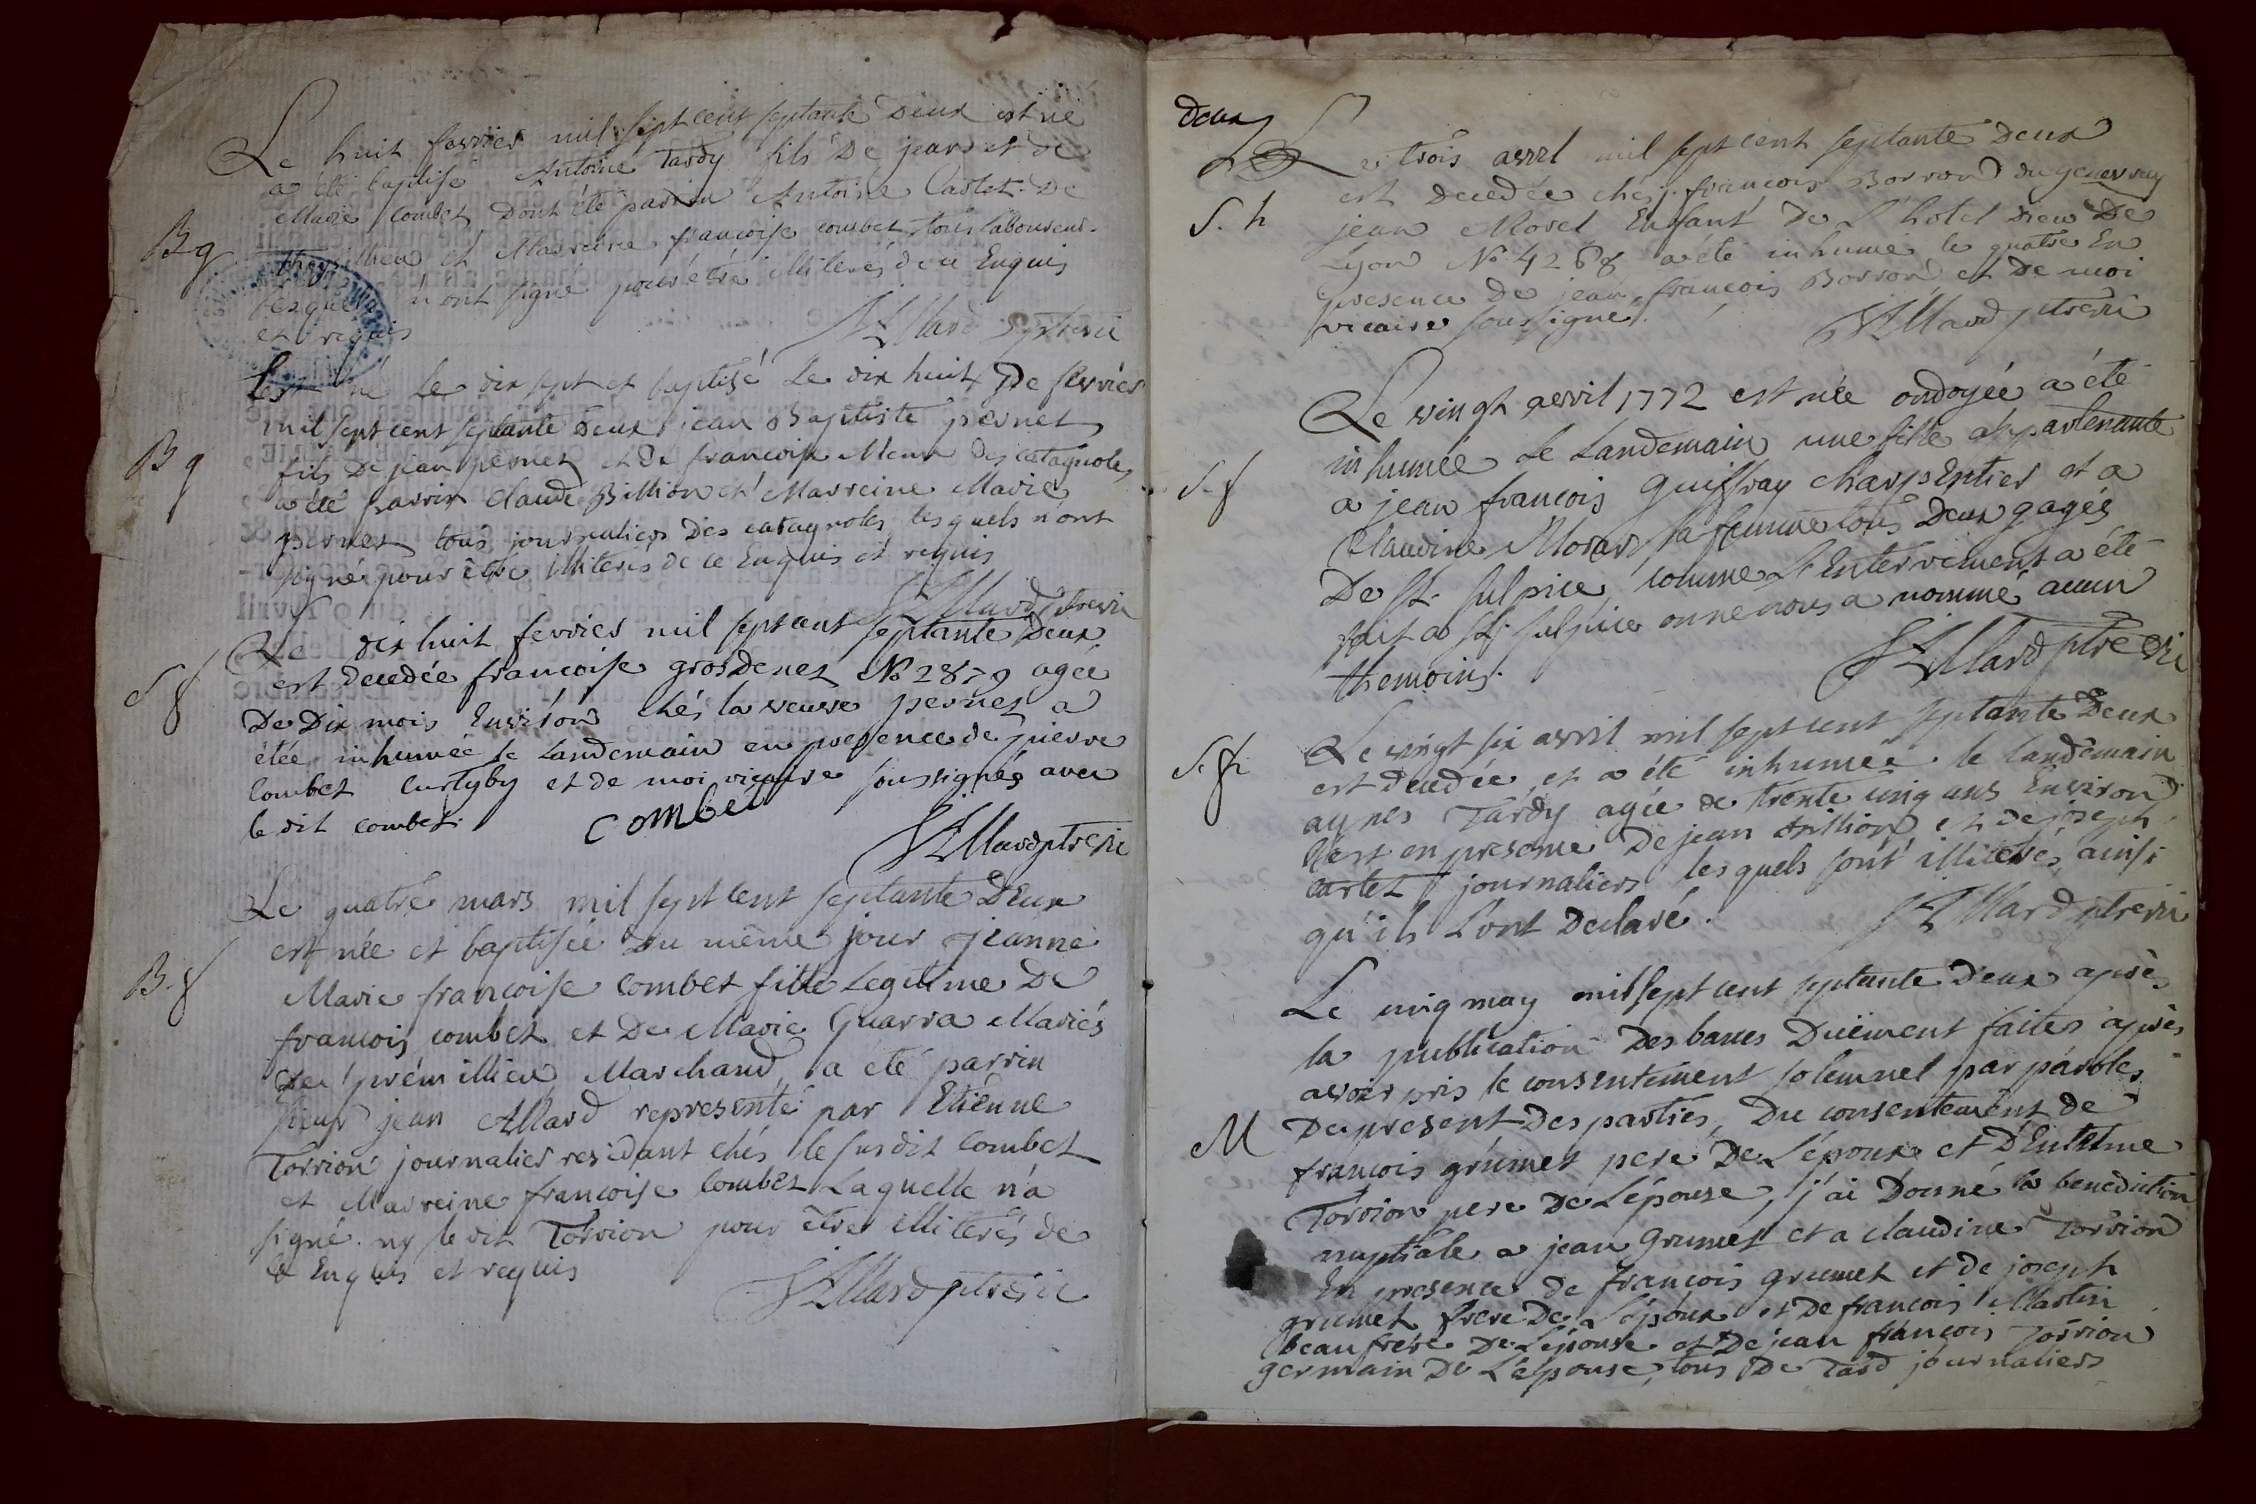 Le huit fevrier mil sept cent septante Deux est né
a été baptisé Antoine Tardy fils De jean et de
Marie Combet Dont été parrin Antoine Cartet De
et Marreine francoise combet tous laboureurs
lesquels n'ont signé pour être illiterés de ce Enquis
et requis
JAllard ptre vic
B g
Est né le dix sept et baptisé Le dix huit De fevrier
mil sept cent septante deux jean Baptiste pernet
fils De jean pernet et de francoise Meun des catagnoles
a été parrin Claude Billion et Marreine Marie
pernet tous journaliers Des catagnoles lesquels n'ont
signé pour être illiterés de ce Enquis et requis
JAllard ptre vic
B g
Le dix huit fevrier mil sept cent septante Deux
est decedée francoise grosdenet No 2879 agée
De Dix mois Environ chés la veuve pernet a
étée inhumée le Landemain en presence de pierre
Combet Curtyby et de moi vicaire soussignés avec
le dit combet. combet
JAllard ptre vic
S f
Le quatre mars mil sept cent septante Deux
est née et baptisée Du même jour jeanne
Marie françoise Combet fille Legitime De
francois combet et De Marie Guarra Mariés
De prémillieu Marchand, a été parrin
sieur jean Allard representé par Etienne
Torrion journalier residant chés le susdit Combet
et Marreine francoise Combet Laquelle n'a
signé ny le dit Torrion pour être illiterés de
ce Enquis et requis
JAllard ptre vic
B. f
Deux
Le trois avril mil sept cent septante Deux
est decedée chez j. francois Borron du genevray
jean Morel Enfant De L'hotel Dieu De
Lyon No 4268 a été inhumé le quatre En
presence De jean francois Borron et De moi
vicaire soussigné.
JAllard ptre vic
S. h
Le vingt avril 1772 est née ondoyée a été
inhumée Le Landemain une fille appartenante
a jean francois Guiffray charpentier et a
Claudine Moras sa femme tous Deux gagés
De St. Sulpice, comme L'Enterrement a été
fait a St. Sulpice on ne nous a nommé aucun
themoins.
JAllard ptre vic
S. f
Le vingt six avril mil sept cent septante Deux
est decedée, et a été inhumée le landemain
agnes Tardy agée de trente cinq ans Environ
C'est en presence De jean Billion et de joseph
cartet journaliers lesquels sont illiterés, ainsi
qu'ils L'ont Declaré.
JAllard ptre vic
S. f
Le cinq may mil sept cent septante Deux après
la publication Des bancs Duëment faites après
avoir pris le consentement solemnel par paroles
De present Des parties, Du consentement de
francois grumet pere De L'époux et D'Entelme
Torrion pere De L'épouse, j'ai Donné la benediction
nuptiale a jean Grumet et a claudine Torrion
En presence de francois grumet et de joseph
grumet frere De L'époux et De francois Martin
beau frére De L'épouse et De jean françois Torrion
germain De L'épouse, tous De Tard journaliers
M